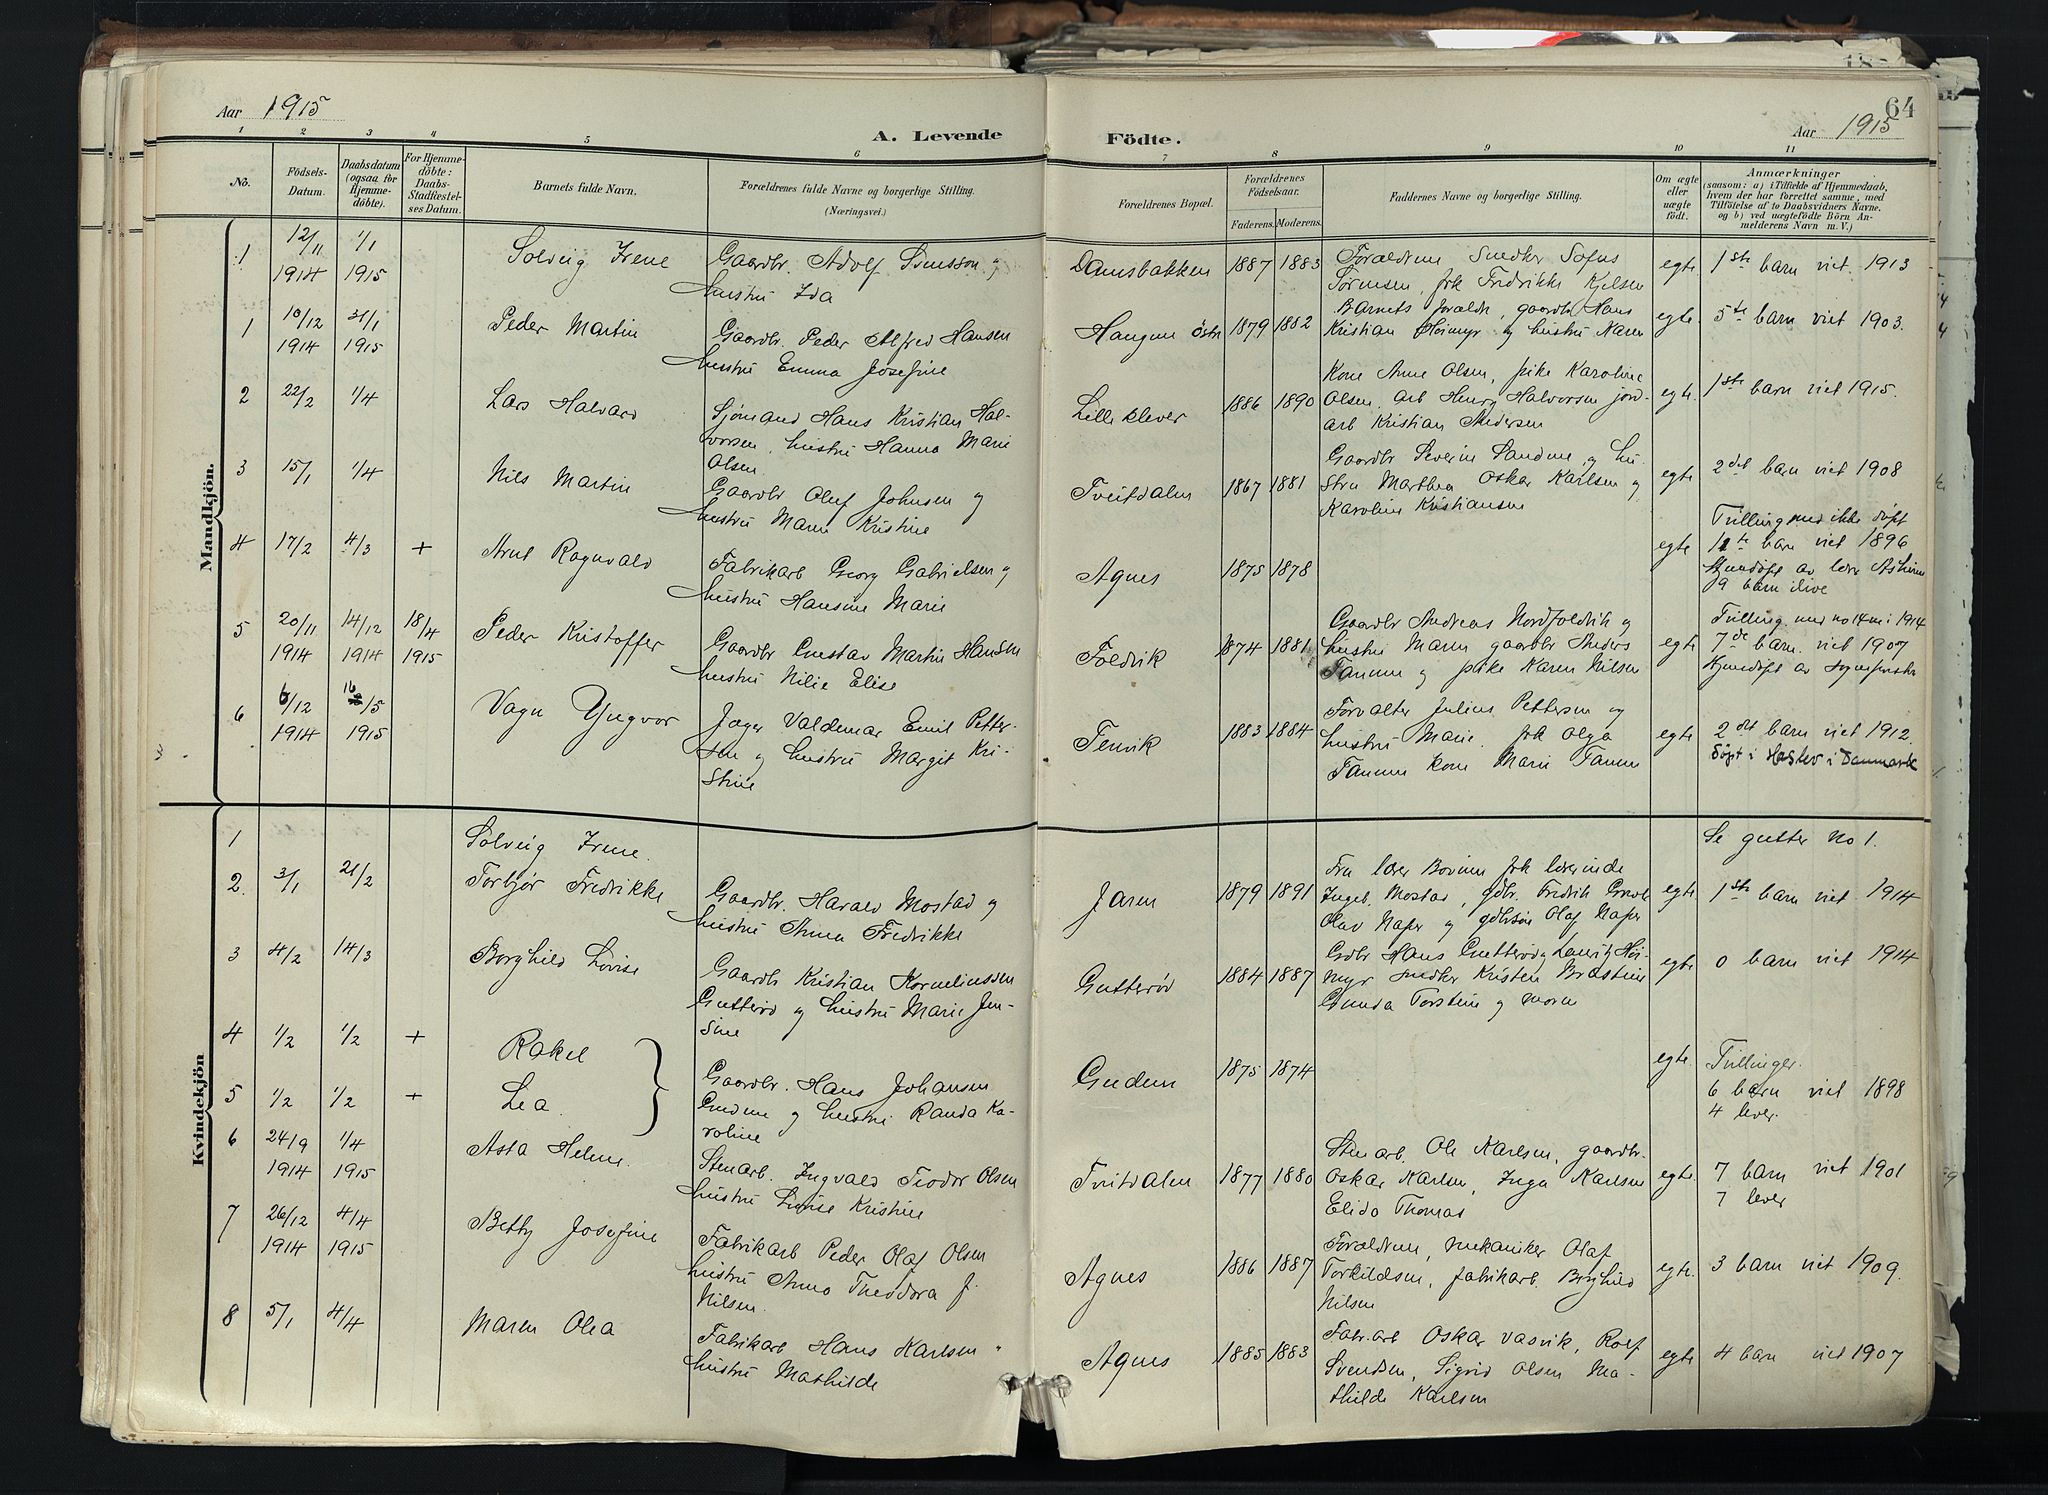 Aar 1915
A. Levende
Födte.
64
Aar 1915
1 2 3 4 5 6 7 8 9 10 11
No.
Födsels-
Datum.
Daabsdatum
(ogsaa for
Hjemme-
döbte).
For Hjemme-
döbte:
Daabs-
Stadfæstel-
ses Datum.
Barnets fulde Navn.
Forældrenes fulde Navne og borgerlige Stilling.
(Næringsvei.)
Forældrenes Bopæl.
Forældrenes
Födselsaar.
Faderens. Moderens.
Faddernes Navne og borgerlige Stilling.
Om ægte
eller
uægte
födt.
Anmærkninger
(saasom: a) i Tilfælde af Hjemmedaab,
hvem der har forrettet samme, med
Tilföielse af to Daabsvidners Navne.
og b) ved uægtefödte Börn An-
melderens Navn m. V.)
Mandkjön.
1 12/11 1914 1/1 1915 Solveig Irene
Gaardbr. Adolf Svensson og
hustru Ida
Damsbakken 1887 1883
Forældrene Snedker Sofus
Sørensen, frk Fredrikke Kjelsen
egte 1ste barn viet 1913
1 10/12 1914 31/1 1915 Peder Martin
Gaardbr. Peder Alfred Hansen
hustru Emma Josefine
Haugen östre 1879 1882
Barnets foraldr, gaardbr Hans
Kristian Höimyr og hustru Karen
egte 5te barn viet 1903.
2 22/2 1/4 Lars Halvard
Sjömand Hans Kristian Hal-
vorsen, hustru Hanna Marie
Olsen
Lille klever 1886 1890
Kone Anne Olsen, pike Karoline
Olsen, arb Henry Halvorsen jord-
arb Kristian Andersen
egte 1ste barn viet 1915.
3 15/1 1/4 Nils Martin
Gaardbr Oluf Johnsen og
hustru Maren Kristine
Tveitdalen 1867 1881
Gaardbr Severin Sandene og hu-
stru Marthea Oskar Karlsen og
Karoline Kristiansen
egte 2det barn viet 1908
4 17/2 4/3 + Arnt Ragnvald
Fabrikarb Georg Gabrielsen og
hustru Hansine Marie
Agnes 1875 1878
egte
Tvilling med ikke döpt
11te barn viet 1896
Hjemdöpt av lærer
9 barn ilive
5 20/11 1914 14/12 1914 18/4 1915 Peder Kristoffer
Gaardbr Gustav Martin Hansen
hustru Nilie Elise
Foldvik 1874 1881
Gaardbr Andreas Nordfoldvik og
hustru Maren gaardbr Anders
Tanum og pike Karen Nilsen
egte
Tvilling med no 14 m i 1914
7de barn viet 1907
Hjemdöpt av
6 6/12 1914 16/5 1915 Vagn Yngvar
Jæger Valdemar Emil Petter-
sen og hustru Margit Kri-
stine
Tenvik 1883 1884
Forvalter Julius Pettersen og
hustru Marie, frk Olga
Tanum kone Marie Tanum
egte
2det barn viet 1912.
döpt i Haslev i Danmark
Kvindekjön
1 Solveig Irene. Se gutter no 1.
2 3/1 21/2 Torbjør Fredrikke
Gaardbr. Harald Mostad og
hustru Anna Fredrikke
Jaren 1879 1891
Fru lærer Bovim frk lærerinde
Ingeb. Mostad, gdbr. Fredrik
Olav Nafer og gdbrsön Olaf Nafer
egte 1ste barn viet 1914
3 4/2 14/3 Borghild Lovise
Gaardbr Kristian Kornelinssen
Gutterød og hustru Marie Jen-
sine
Gutterød 1884 1887
Gdbr Hans Gutterød, Lauritz Höi-
myr snedker Kristen Bråstein
Gunda Torstein og moren
egte 0 barn viet 1914
4 1/2 1/2 + Rakel
5 1/2 1/2 + Lea
Gaardbr. Hans Johansen
Gudem og hustru Randa Ka-
roline
Gudem 1875 1874
egte
Tvillinger.
6 barn viet 1898
4 lever.
6 24/9 1914 1/4 1915 Asta Helene.
Stenarb. Ingvald Teodor Olsen
hustru Lovise Kristine
Tveitdalen 1877 1880
Stenarb. Ole Karlsen, gaardbr.
Oskar Karlsen, Inga Karlsen
Elida Thomas
egte. 7 barn viet 1901
7 lever
7 26/12 1914 4/4 1915 Betty Josefine
Fabrikarb Peder Olaf Olsen
hustru Anna Theodora f.
Nilsen.
Agnes 1886 1887
Forældrene, mekaniker Olaf
Torkildsen, fabrikarb. Borghild
Nilsen
egte. 3 barn viet 1909.
8 5/1 4/4 Maren Olea
Fabrikarb Hans Karlsen
hustru Mathilde
Agnes 1885 1883
Fabr.arb Oskar Vasvik, Rolf
Svendsen, Sigrid Olsen Ma-
thilde Karlsen
egte 4 barn viet 1907